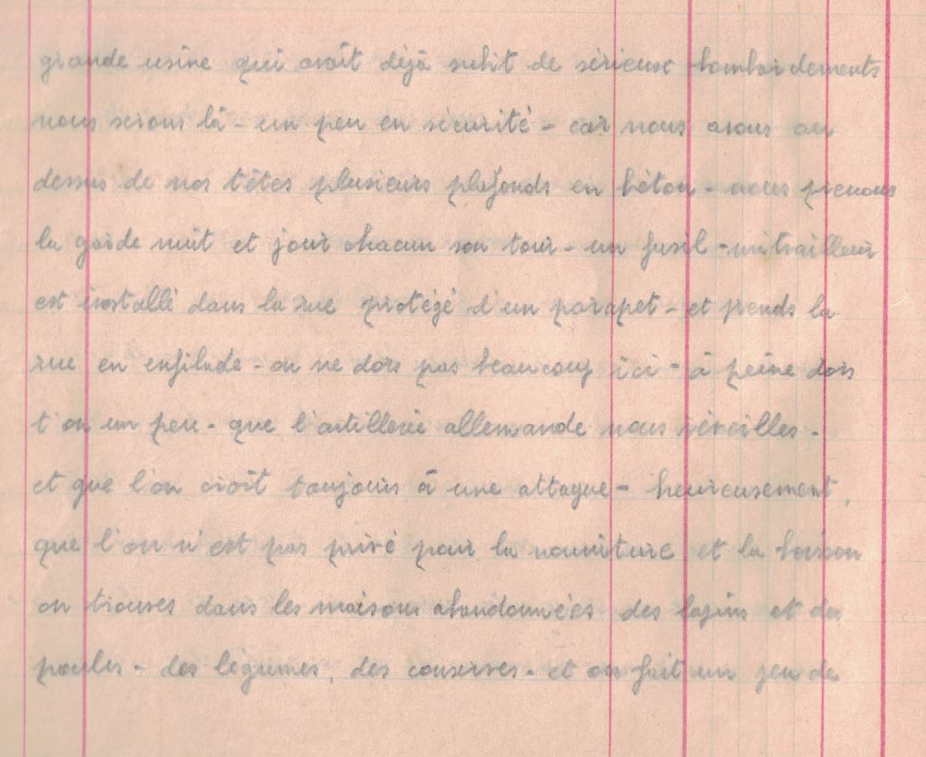 grande usine qui avait déjà subit de sérieux bombardements
nous serons là - un peu en sécurité - car nous avons au
dessus de nos têtes plusieurs plafonds en béton - nous prenons
la garde nuit et jour chacun son tour - un fusil-mitrailleur
est installé dans la rue protégé d'un parapet - et prends la
rue en enfilade - on ne dors pas beaucoup ici - à peine dors
t'on un peu - que l'artillerie allemande nous réveilles -
et que l'on croît toujours à une attaque - heureusement,
que l'on n'est pas privé pour la nourriture et la boisson
on trouves dans les maisons abandonnées des lapins et des
poules - des légumes, des conserves - et on fait un feu de